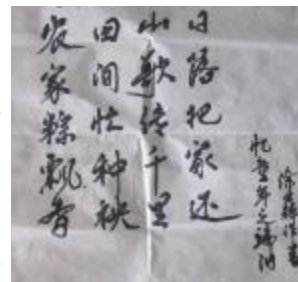 日落把家还
山歌传千里
田间忙种秧
农家粽飘香
忆童年之端阳